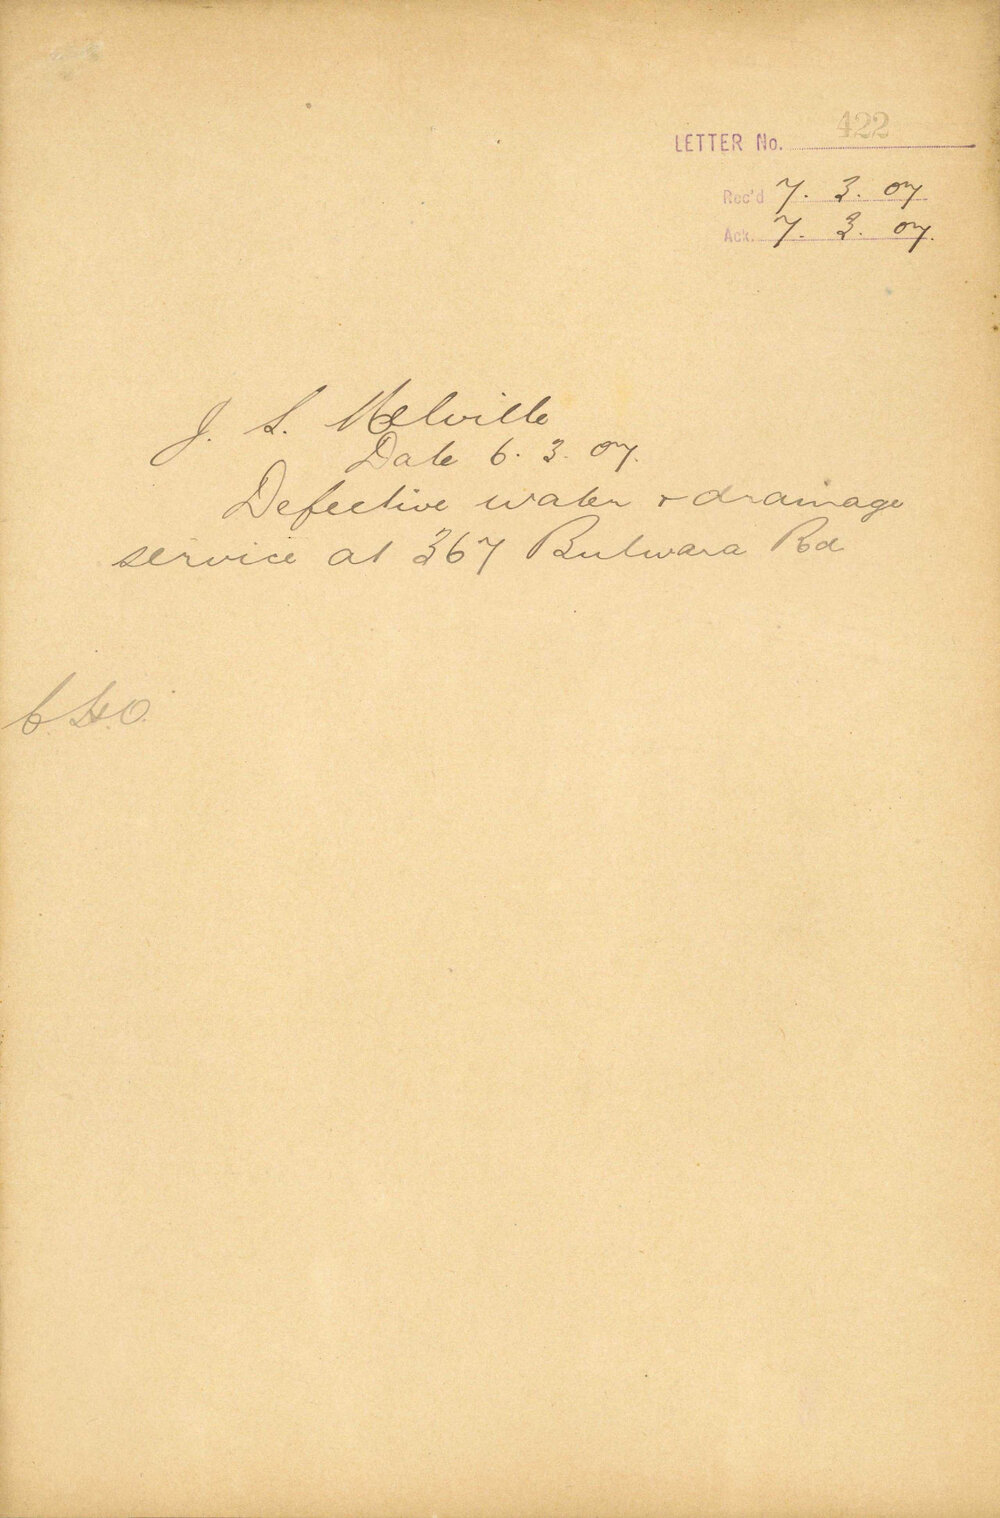 LETTER No. 422
Rec'd 7. 3. 07
Ack. 7. 3. 07.
J. S. Melville
Date 6. 3. 07.
Defective water & drainage
service at 367 Bulwara Rd
C.H.O.